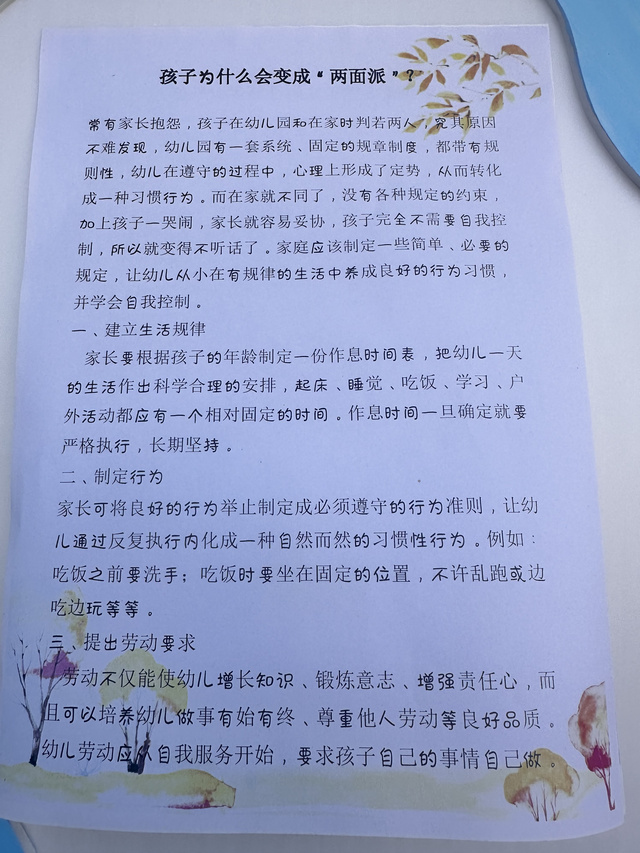 孩子为什么会变成“两面派”？
常有家长抱怨，孩子在幼儿园和在家时判若两人，究其原因
不难发现，幼儿园有一套系统、固定的规章制度，都带有规
则性，幼儿在遵守的过程中，心理上形成了定势，从而转化
成一种习惯行为。而在家就不同了，没有各种规定的约束，
加上孩子一哭闹，家长就容易妥协，孩子完全不需要自我控
制，所以就变得不听话了。家庭应该制定一些简单、必要的
规定，让幼儿从小在有规律的生活中养成良好的行为习惯，
并学会自我控制。
一、建立生活规律
家长要根据孩子的年龄制定一份作息时间表，把幼儿一天
的生活作出科学合理的安排，起床、睡觉、吃饭、学习、户
外活动都应有一个相对固定的时间。作息时间一旦确定就要
严格执行，长期坚持。
二、制定行为
家长可将良好的行为举止制定成必须遵守的行为准则，让幼
儿通过反复执行内化成一种自然而然的习惯性行为。例如：
吃饭之前要洗手；吃饭时要坐在固定的位置，不许乱跑或边
吃边玩等等。
三、提出劳动要求
劳动不仅能使幼儿增长知识、锻炼意志、增强责任心，而
且可以培养幼儿做事有始有终、尊重他人劳动等良好品质。
幼儿劳动应从自我服务开始，要求孩子自己的事情自己做。